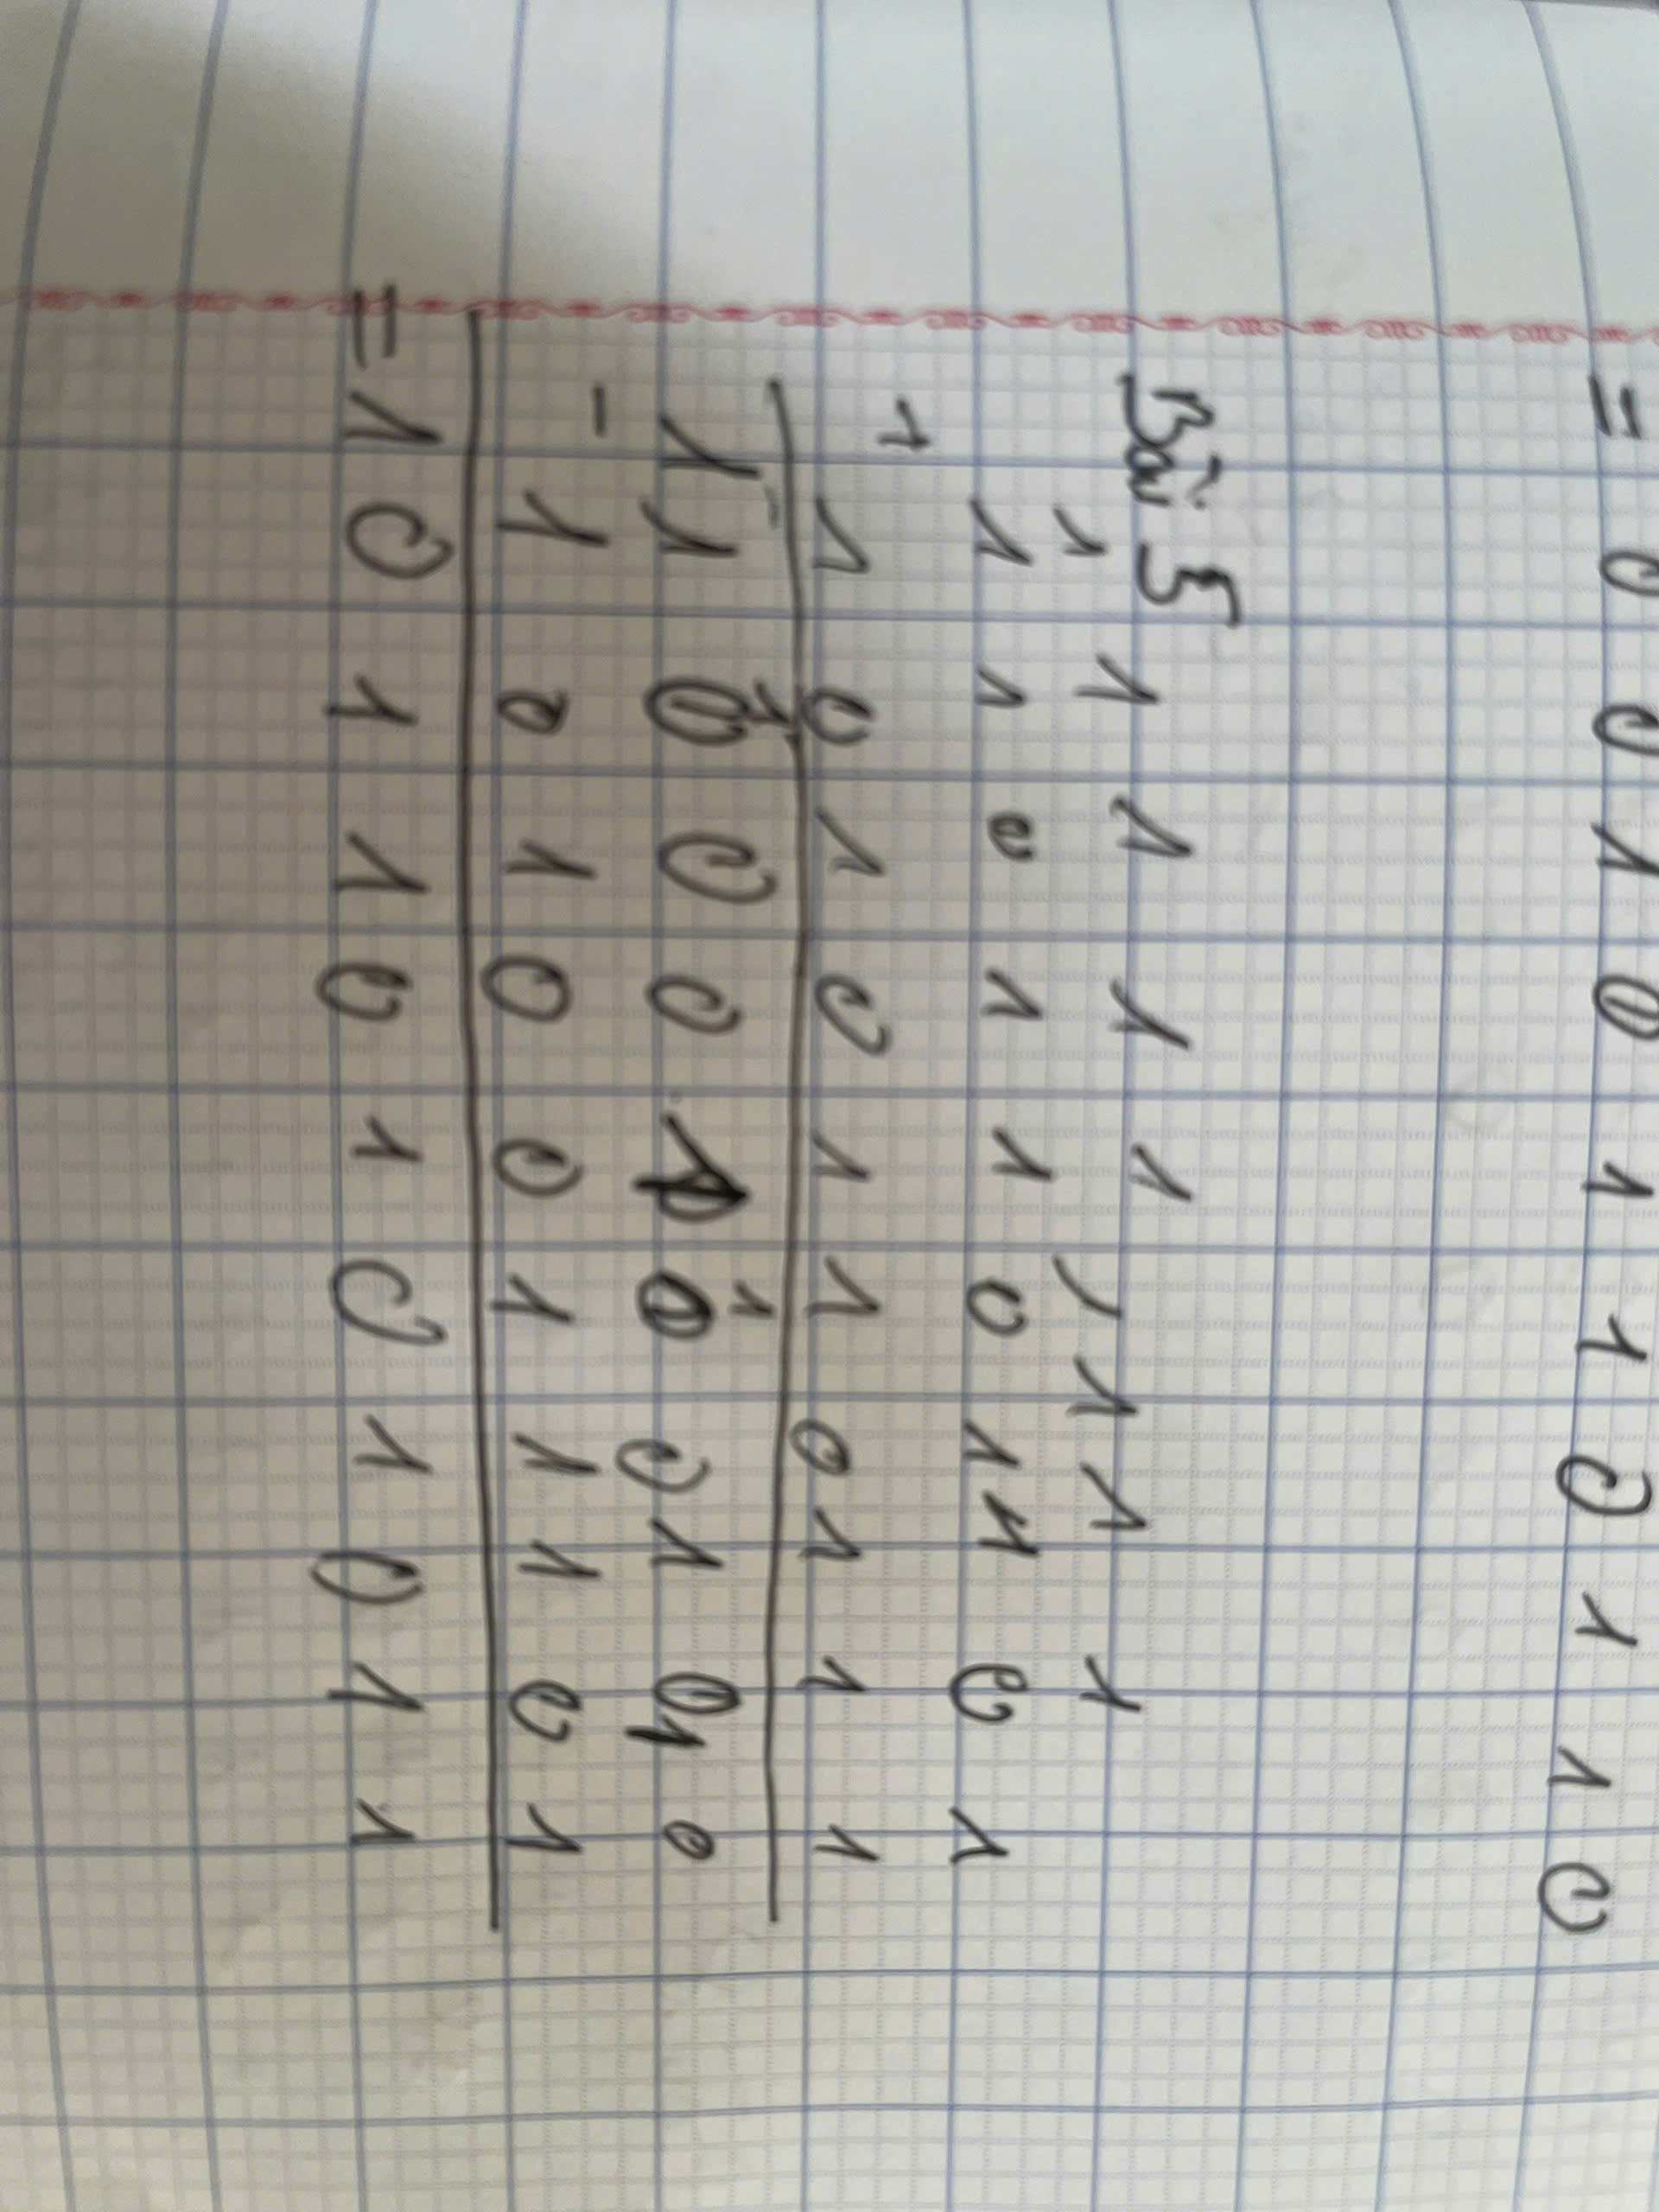 = 0 0 1 0 1 1 0 1 1 0
Bài 5
1 1 1 1 1 1 1 1 1
1 1 0 1 1 0 1 1 0 1
+
1 0 1 0 1 1 0 1 1 1
1 1
1 1 0 0 0 1 0 0 1 01 0
-
1 0 1 0 0 1 1 1 0 1
= 1 0 1 1 0 1 0 1 0 1 1